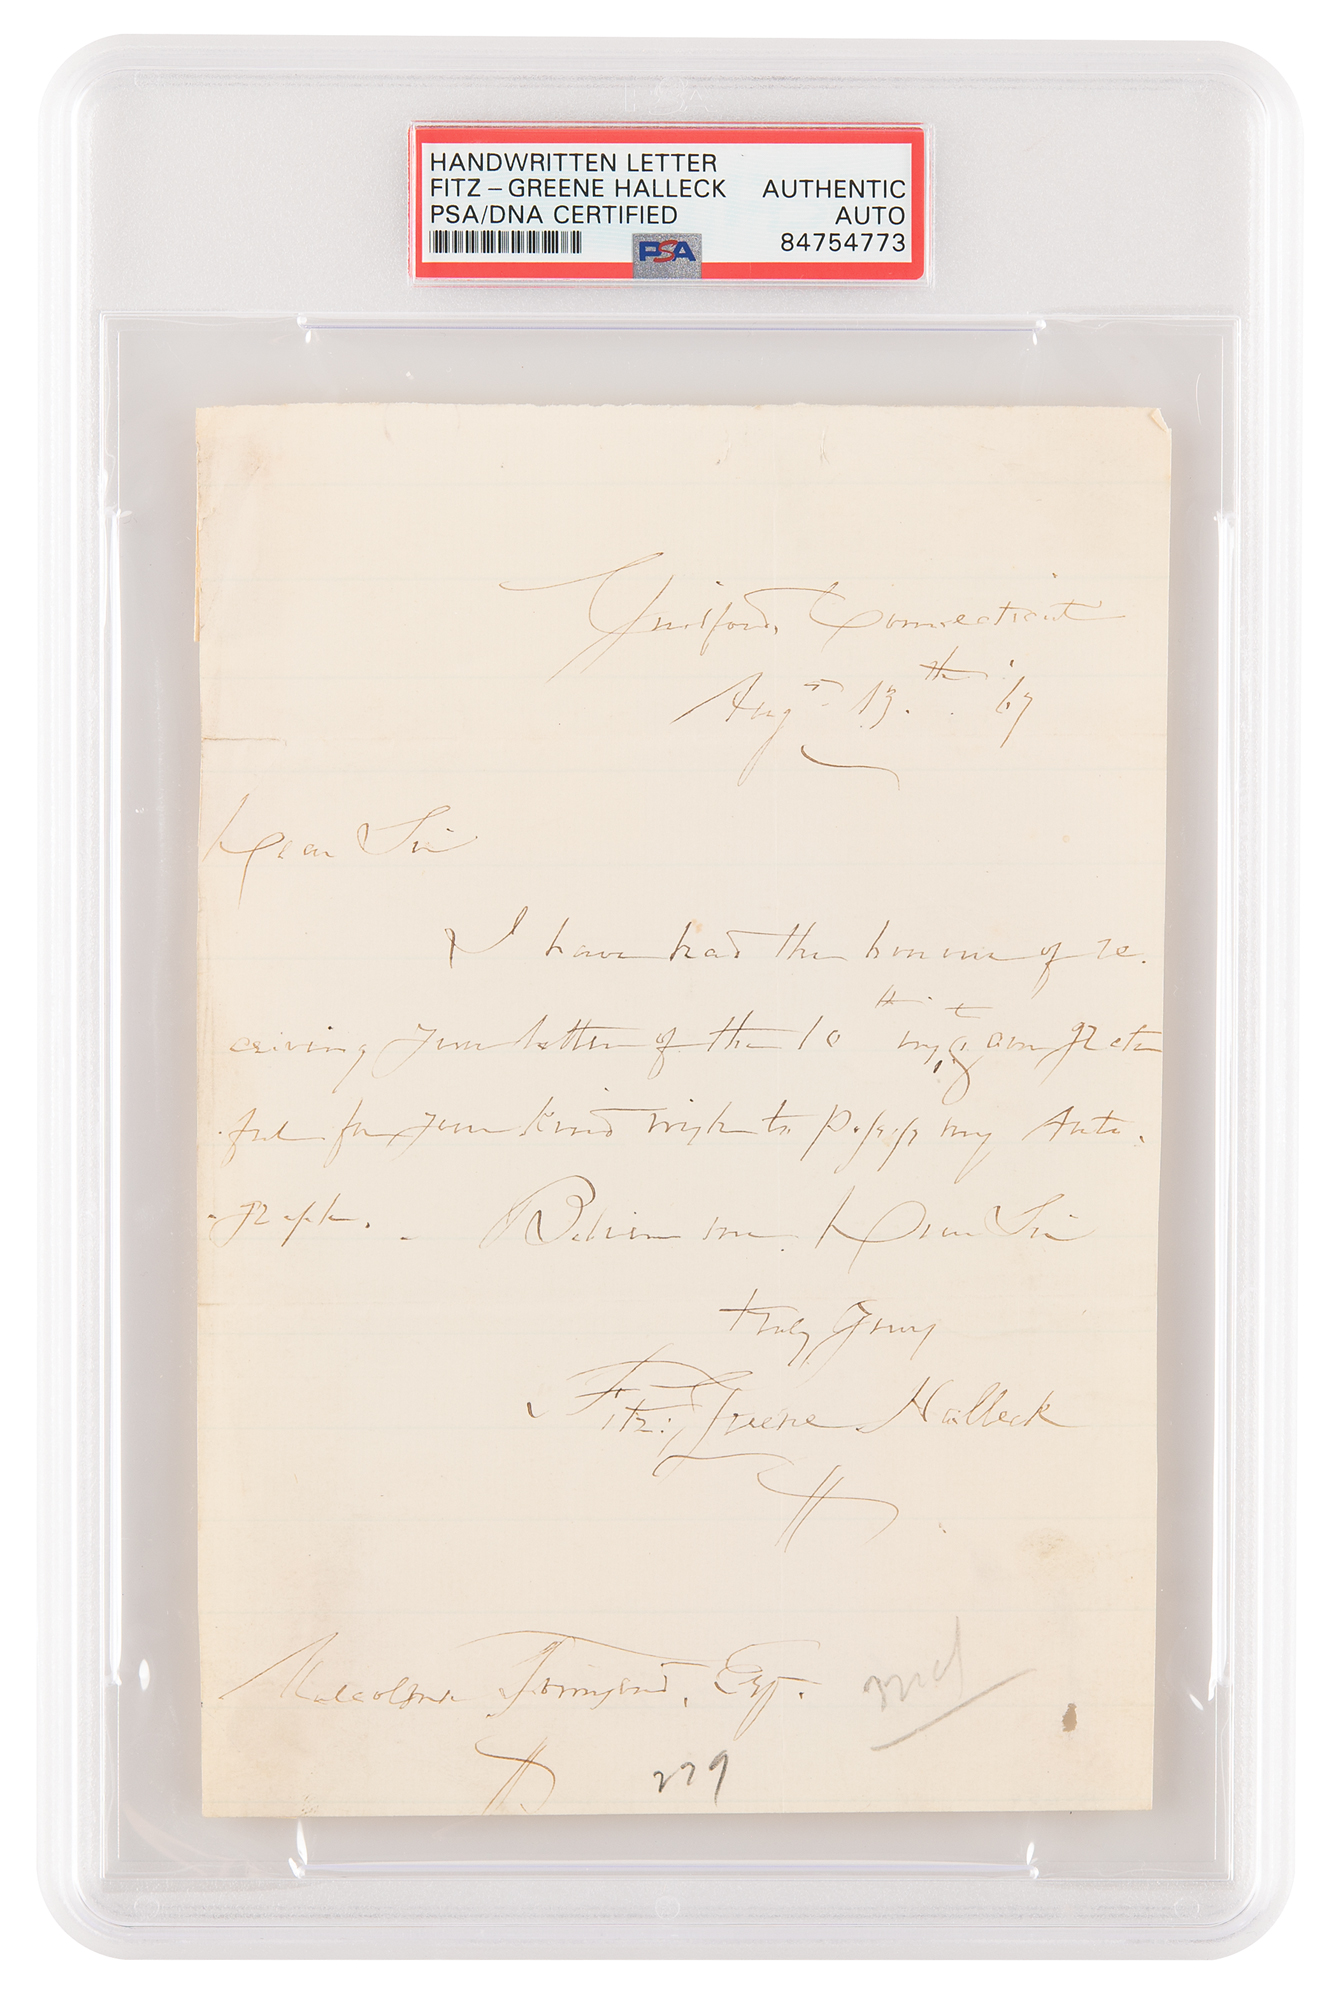 HANDWRITTEN LETTER
FITZ – GREENE HALLECK AUTHENTIC
PSA/DNA CERTIFIED AUTO
PSA 84754773
Guilford, Connecticut
Augt 13th '67
Dear Sir
I have had the honour of re-
ceiving your letter of the 10th inst, & am grate
ful for your kind wish to possess my Auto-
-graph. - Believe me, Dear Sir
truly Yours
Fitz: Greene Halleck
Malcolm Townsend, Esq.
279